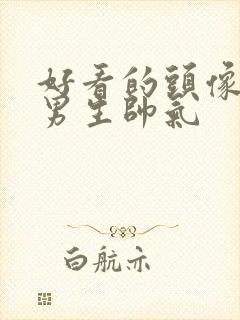 好看的頭像
男生帥氣
白航亦